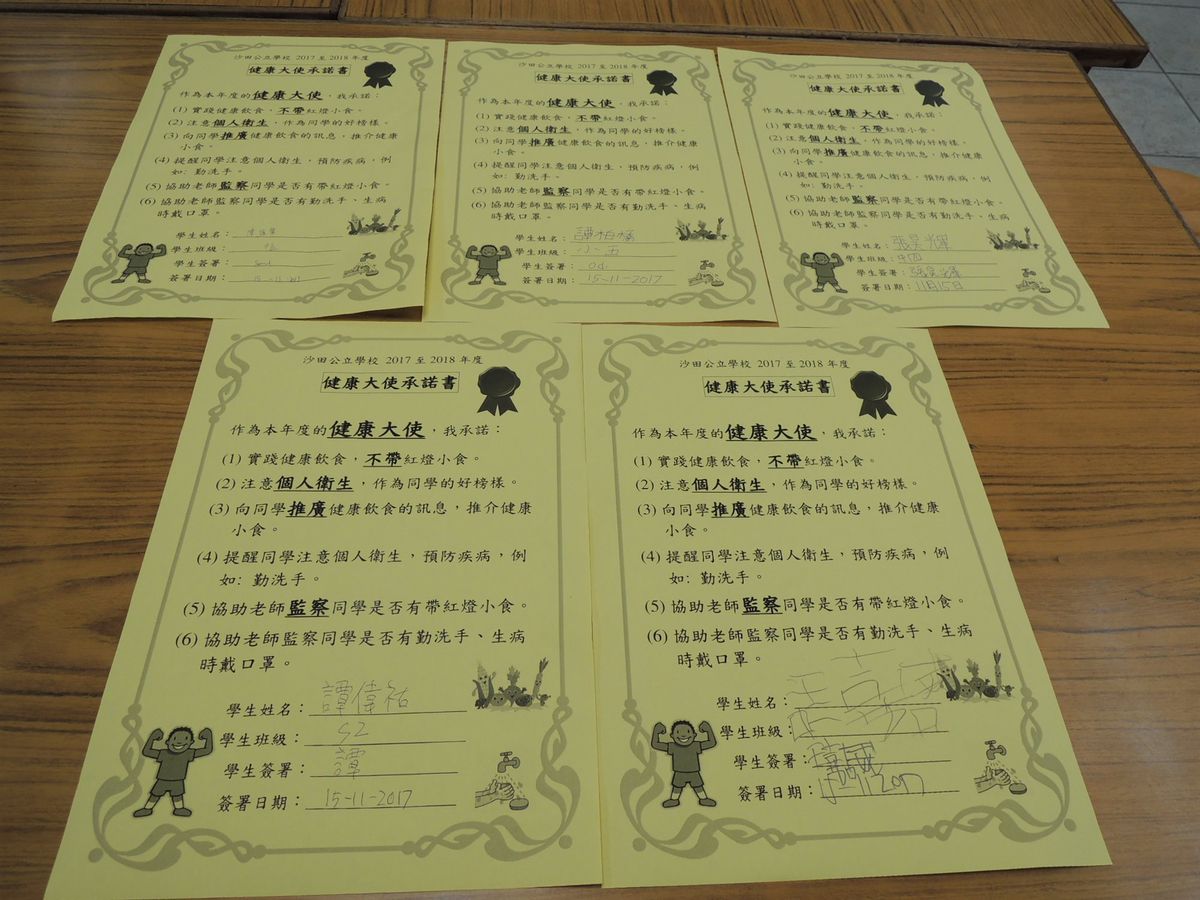 沙田公立學校 2017 至 2018 年度
健康大使承諾書
作為本年度的健康大使，我承諾：
(1) 實踐健康飲食，不帶紅燈小食。
(2) 注意個人衛生，作為同學的好榜樣。
(3) 向同學推廣健康飲食的訊息，推介健康
小食。
(4) 提醒同學注意個人衛生，預防疾病，例
如: 勤洗手。
(5) 協助老師監察同學是否有帶紅燈小食。
(6) 協助老師監察同學是否有勤洗手、生病
時戴口罩。
學生姓名：
學生班級：
學生簽署：
簽署日期：
沙田公立學校 2017 至 2018 年度
健康大使承諾書
作為本年度的健康大使，我承諾：
(1) 實踐健康飲食，不帶紅燈小食。
(2) 注意個人衛生，作為同學的好榜樣。
(3) 向同學推廣健康飲食的訊息，推介健康
小食。
(4) 提醒同學注意個人衛生，預防疾病，例
如: 勤洗手。
(5) 協助老師監察同學是否有帶紅燈小食。
(6) 協助老師監察同學是否有勤洗手、生病
時戴口罩。
學生姓名：
學生班級：小五
學生簽署：
簽署日期：15-11-2017
沙田公立學校 2017 至 2018 年度
健康大使承諾書
作為本年度的健康大使，我承諾：
(1) 實踐健康飲食，不帶紅燈小食。
(2) 注意個人衛生，作為同學的好榜樣。
(3) 向同學推廣健康飲食的訊息，推介健康
小食。
(4) 提醒同學注意個人衛生，預防疾病，例
如: 勤洗手。
(5) 協助老師監察同學是否有帶紅燈小食。
(6) 協助老師監察同學是否有勤洗手、生病
時戴口罩。
學生姓名：張昊輝
學生班級：中四
學生簽署：張昊輝
簽署日期：11月15日
沙田公立學校 2017 至 2018 年度
健康大使承諾書
作為本年度的健康大使，我承諾：
(1) 實踐健康飲食，不帶紅燈小食。
(2) 注意個人衛生，作為同學的好榜樣。
(3) 向同學推廣健康飲食的訊息，推介健康
小食。
(4) 提醒同學注意個人衛生，預防疾病，例
如: 勤洗手。
(5) 協助老師監察同學是否有帶紅燈小食。
(6) 協助老師監察同學是否有勤洗手、生病
時戴口罩。
學生姓名：譚偉祐
學生班級：S2
學生簽署：譚
簽署日期：15-11-2017
沙田公立學校 2017 至 2018 年度
健康大使承諾書
作為本年度的健康大使，我承諾：
(1) 實踐健康飲食，不帶紅燈小食。
(2) 注意個人衛生，作為同學的好榜樣。
(3) 向同學推廣健康飲食的訊息，推介健康
小食。
(4) 提醒同學注意個人衛生，預防疾病，例
如: 勤洗手。
(5) 協助老師監察同學是否有帶紅燈小食。
(6) 協助老師監察同學是否有勤洗手、生病
時戴口罩。
學生姓名：
學生班級：
學生簽署：
簽署日期：